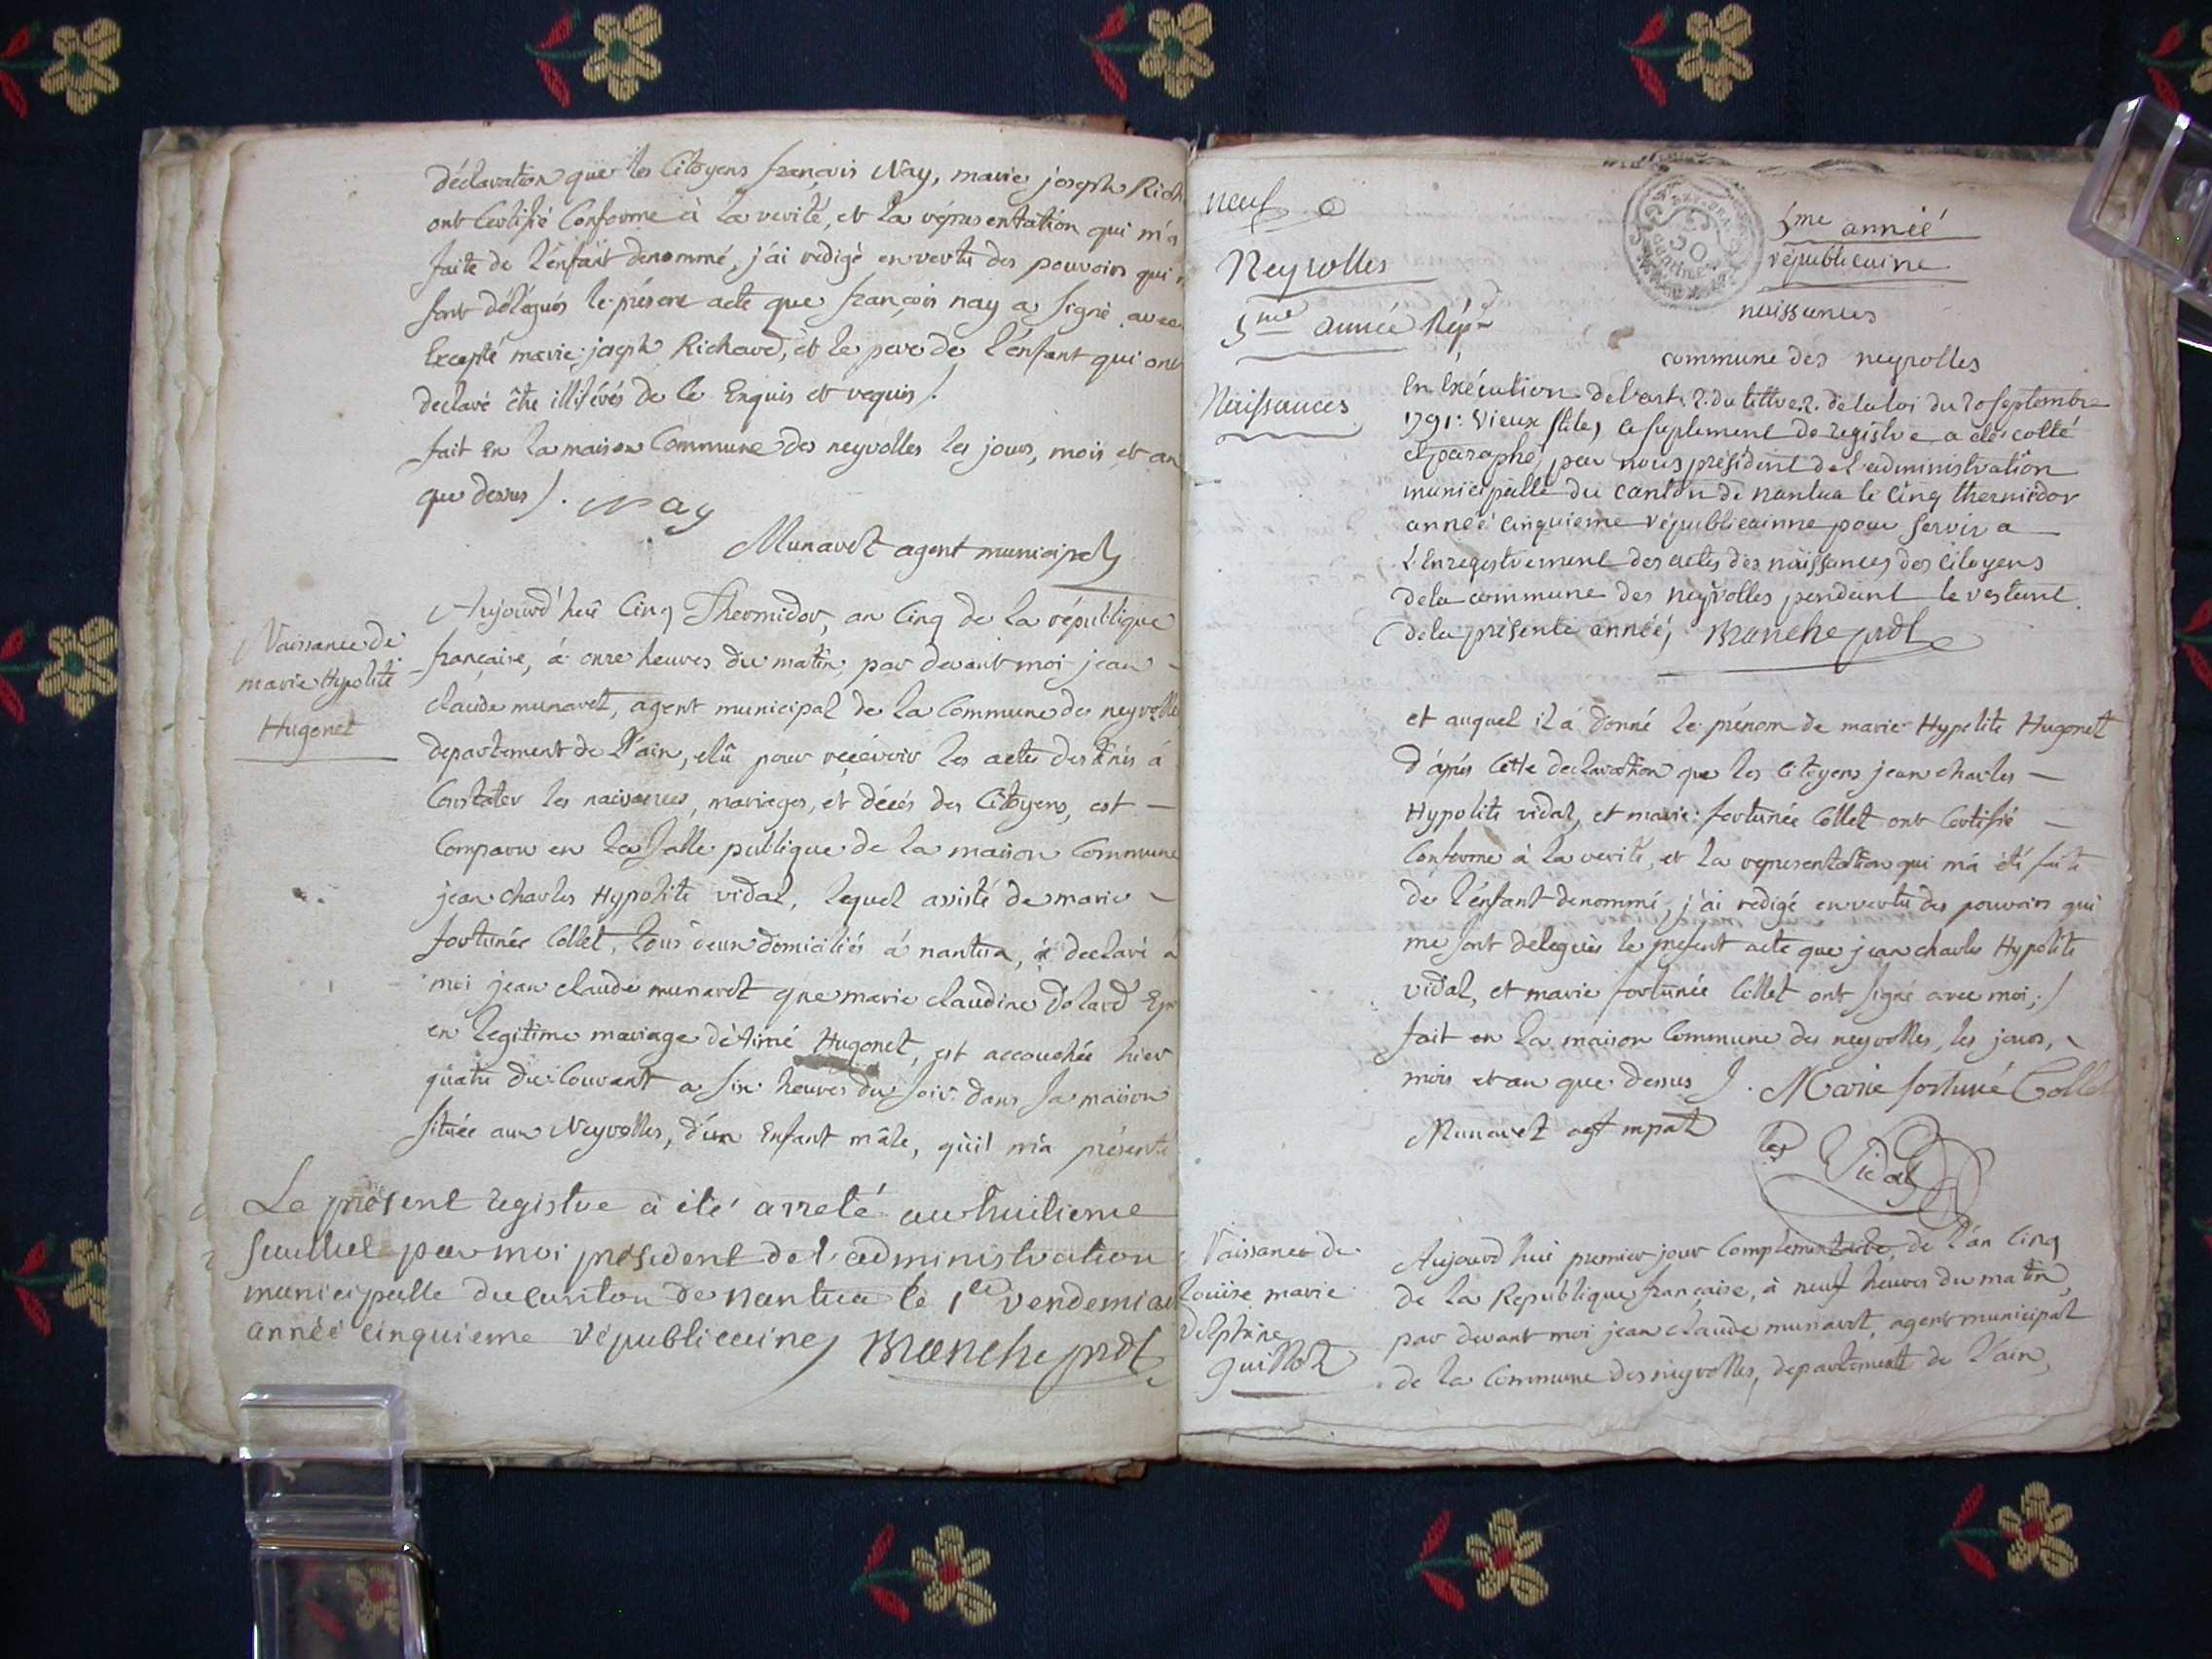 déclaration que les Citoyens françois Nay, marie joseph Rich
ont Certifié Conforme à la verité, et la réprésentation qui m'a
faite de l'énfant denommé, j'ai redigé en vertu des pouvoirs qui
sont délégués le présent acte que françois nay a signé avec
Excepté marie joseph Richard, et le pere de l'énfant qui ont
declaré être illitérés de ce Enquis et requis /.
fait en la maison Commune des neyrolles les jours, mois et an
que dessus /. Nay
Munaret agent municipal
Naissance de
marie Hypolite
Hugonet
Aujourd'hui Cinq Thermidor, an Cinq de la république
française, à onze heures du matin, par devant moi jean
claude munaret, agent municipal de la Commune des neyrolles
departement de l'ain, elû pour reçévoir les actes destinés à
Constater les naissances, mariages, et décès des Citoyens, est —
Comparu en la salle publique de la maison Commune
jean charles Hypolite vidal, lequel assisté de marie
fortunée Collet, tous deux domiciliés à nantua, à declaré a
moi jean claude munaret que marie claudine Dolard Ep
en legitime mariage d'étimé Hugonet, est accouchée hier
quatre du Courant a six heures du soir dans sa maison
située aux Neyrolles, d'un Enfant mâle, qu'il m'a présenté
Le présent registre à été arreté au huitieme
feuillet par moi président de l'administration
municipalle du canton de nantua le 1er vendemiai
année cinquieme républicaine Manche prdt
neuf
Neyrolles
5me année Rép
Naissances
50
5me année
républicaine
naissances
commune des neyrolles
En Exécution de l'art. 2. du tittre 2. de la loi du 20 septembre
1791: vieux stile, ce suplement de registre a été cotté
et paraphé, par nous président de l'administration
municipalle du canton de nantua le cinq thermidor
année cinquieme républicainne pour servir a
l'Enregistrement des actes des naissances des citoyens
de la commune des neyrolles pendant le restant
de la présente année, Manche prdt
et auquel il à donné le prénom de marie Hypolite Hugonet
d'après Cette declaration que les Citoyens jean charles —
Hypolite vidal, et marie fortunée Collet ont Certifié —
Conforme à la verité, et la representation qui m'a été faite
de l'énfant denommé, j'ai redigé en vertu des pouvoirs qui
me sont delegués le present acte que jean charles Hypolite
vidal, et marie fortunée Collet ont signé avec moi, /
fait en la maison Commune des neyrolles, les jours,
mois et an que dessus /. Marie fortuné Collet
Munaret agt mpal
Vidal
Naissance de
Louise marie
Delphine
guillot
Aujourd'hui premier jour Complémentaire, de l'an Cinq
de la Republique française, à neuf heures du matin,
par devant moi jean claude munaret, agent municipal
de la Commune des neyrolles, departement de l'ain,